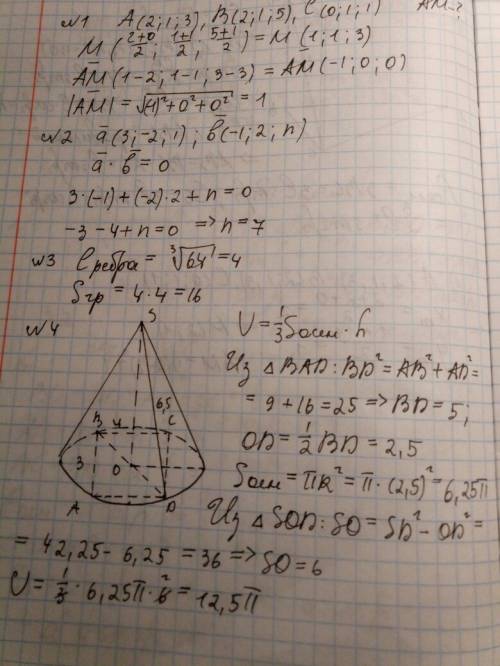 №1 A(2;1;3), B(2;1;5), C(0;1;1) AM-?
M(2+0/2; 1+1/2; 5+1/2) = M(1;1;3)
AM(1-2; 1-1; 3-3) = AM(-1; 0; 0)
|AM| = √(-1)²+0²+0² = 1
№2 a(3;-2;1); b(-1;2;n)
a · b = 0
3·(-1)+(-2)·2+n=0
-3-4+n=0 => n=7
№3 ℓребра = ∛64 = 4
Sгр = 4·4 = 16
№4
S
6,5
B 4 C
3 O
A D
V = 1/3 Sосн · h
Из △BAD: BD² = AB² + AD² =
= 9+16 = 25 => BD = 5;
OD = 1/2 BD = 2,5
Sосн = πR² = π·(2,5)² = 6,25π
Из △SOD: SO = SD² - OD² =
= 42,25 - 6,25 = 36 => SO = 6
V = 1/3 · 6,25π · 6 2 = 12,5π